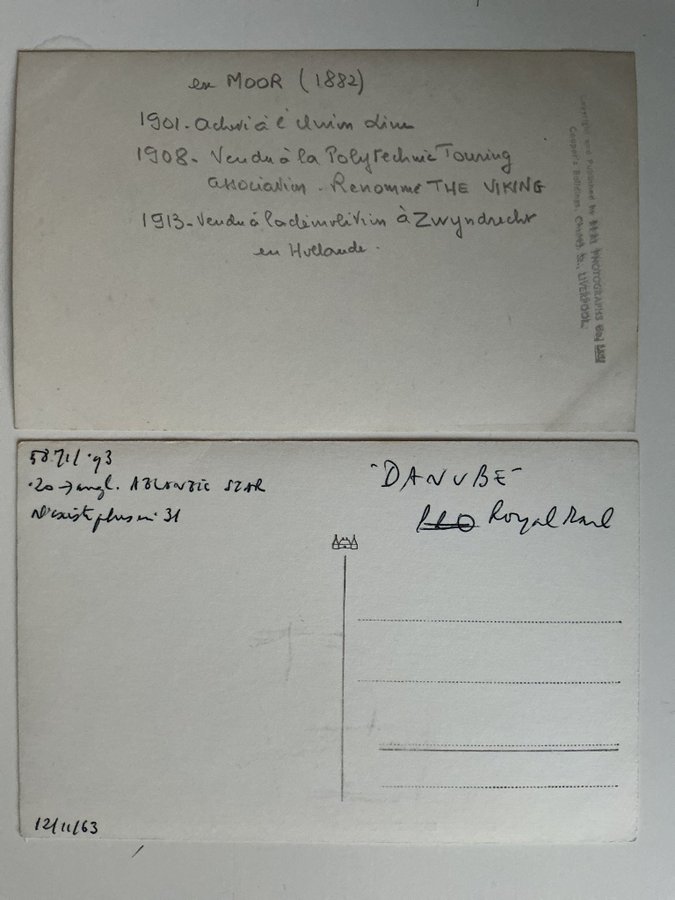 ex MOOR (1882)
1901. acheté à l'Union Line
1908. Vendu à la Polytechnic Touring
association. Renommé THE VIKING
1913. Vendu à la démolition à Zwyndrecht
en Hollande.
Copyright and Published by REAL PHOTOGRAPHS Co.
Cooper's Buildings, Church St., LIVERPOOL.
/93
20 → angl. STAR
N'existe plus en 31
"DANUBE"
Royal Mail
12/11/63